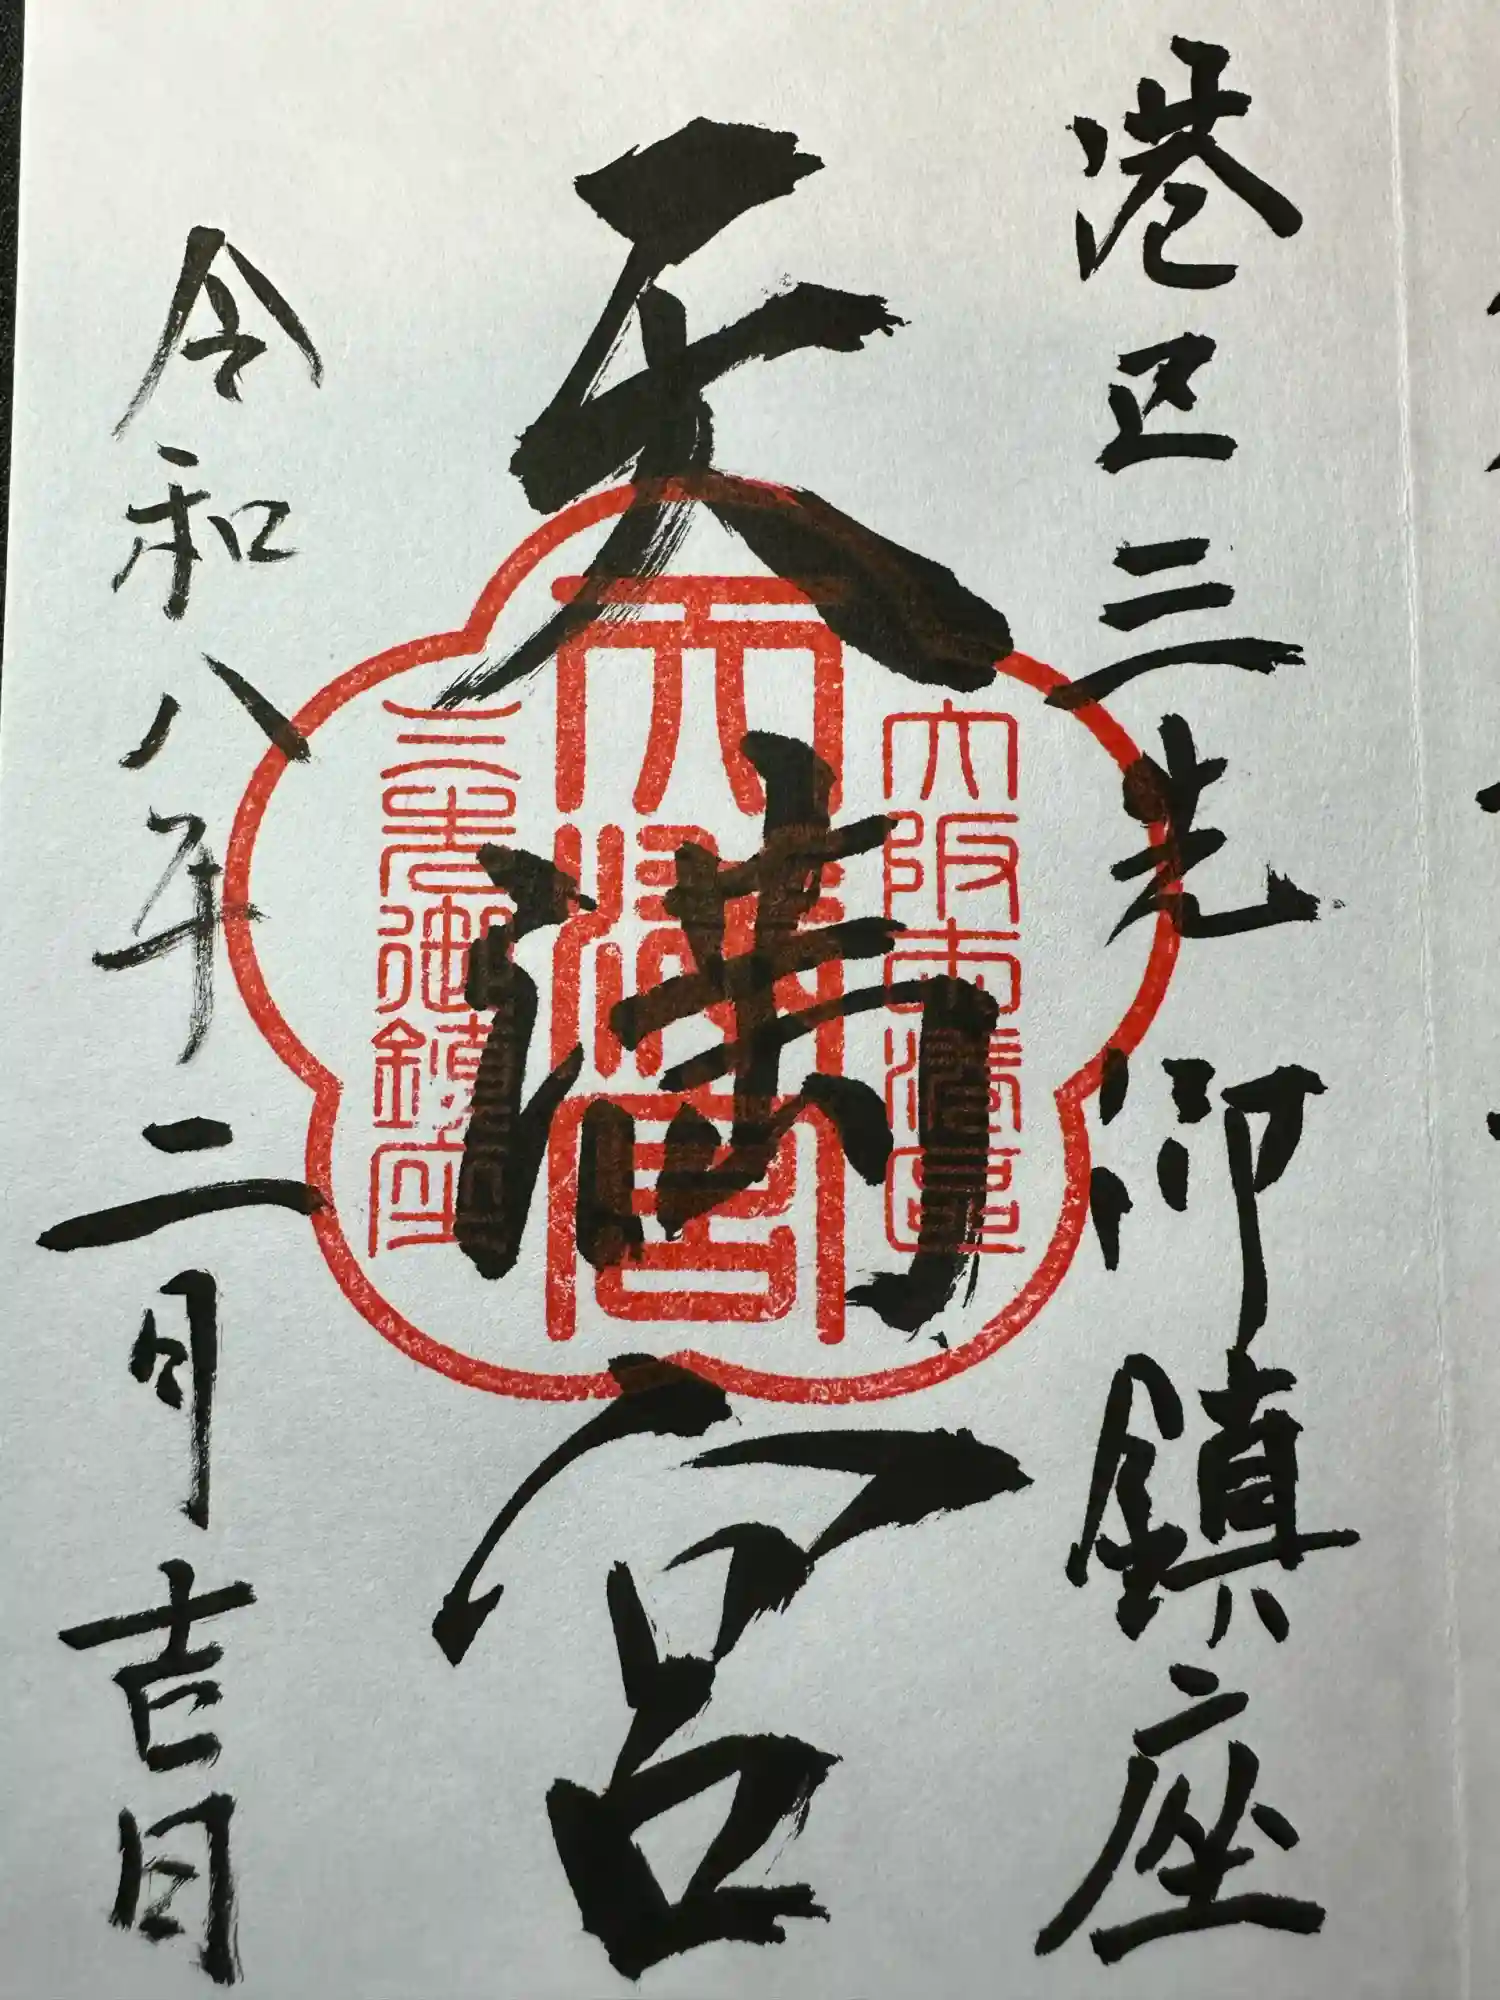 港区三先御鎮座
天満宮
令和八年二月吉日
大阪市港区
天満宮
三先御鎮座